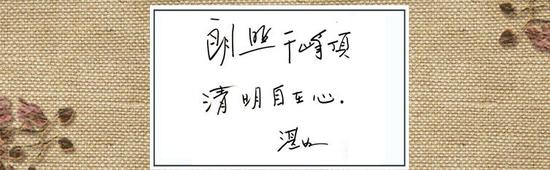 朗照千峰顶
清明自在心.
湛如